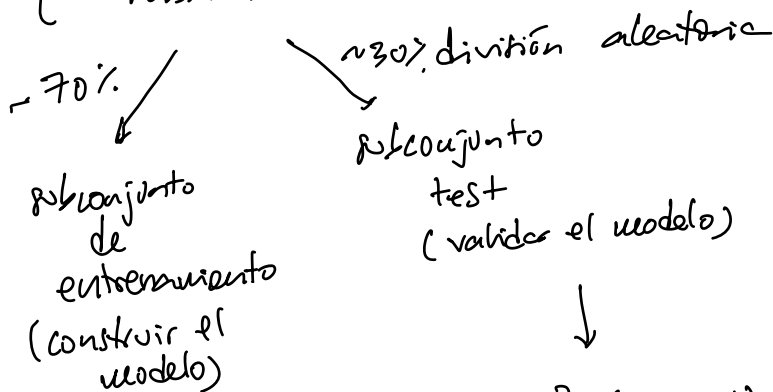 ~70%
~30% división aleatoria
subconjunto
de
entrenamiento
(construir el
modelo)
subconjunto
test
(validar el modelo)